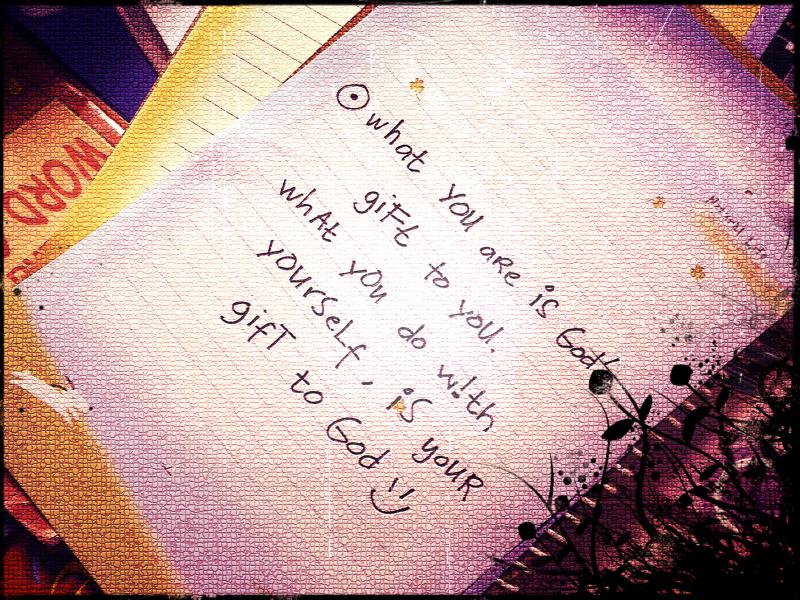 what you are is God's
gift to you.
what you do with
yourself, is your
gift to God
WORD